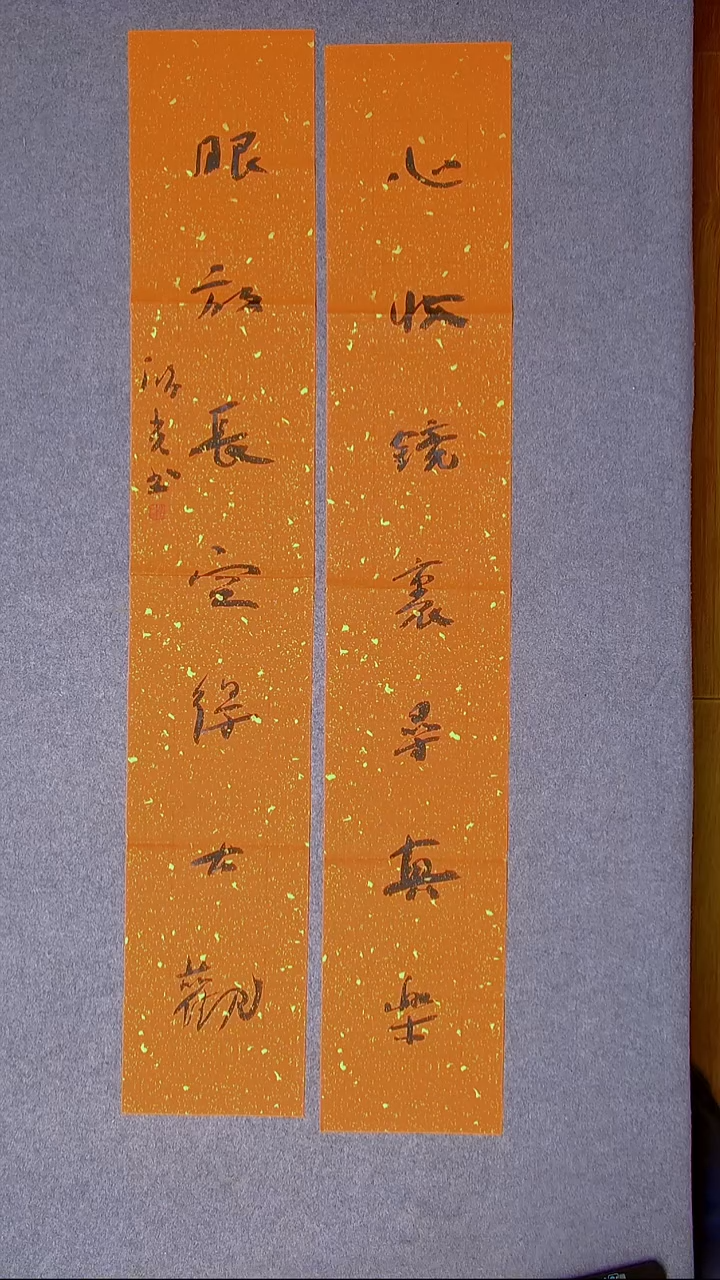 心收鏡裏尋真樂
眼放長空得大觀